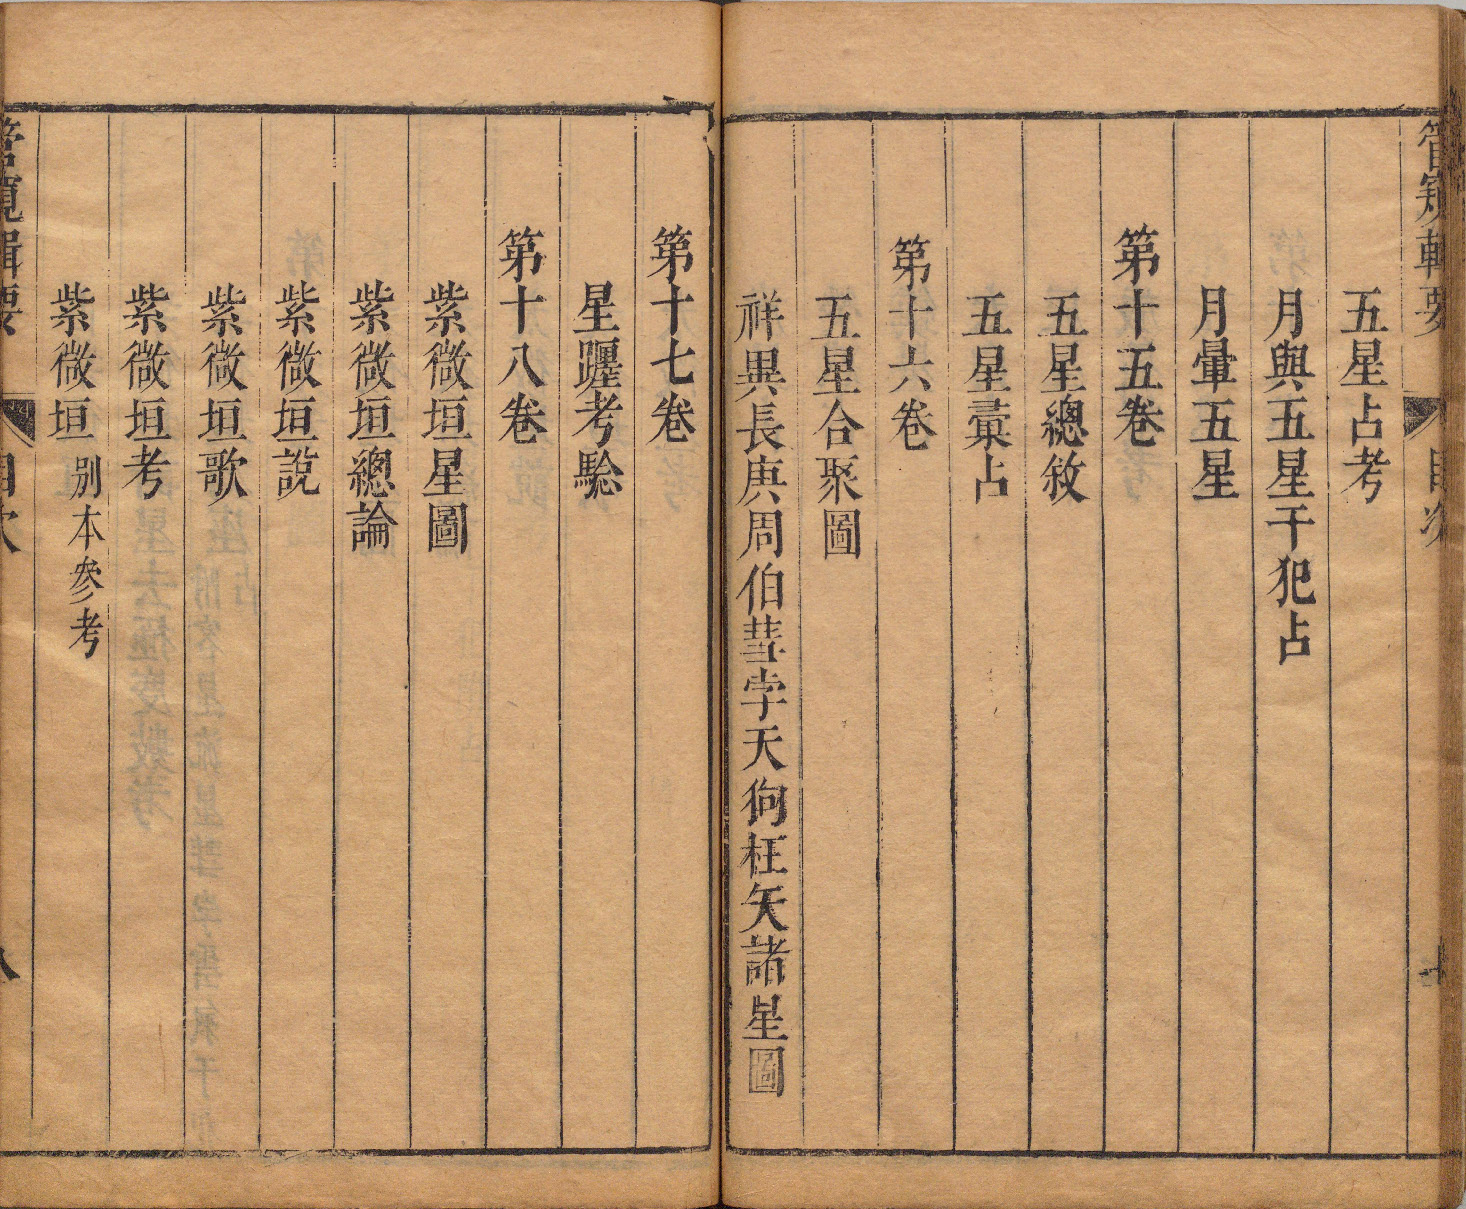 管窺輯要 目次 七
五星占考
月與五星干犯占
月暈五星
第十五卷
五星總敘
五星彙占
第十六卷
五星合聚圖
祥異長庚周伯彗孛天狗枉矢諸星圖
第十七卷
星躔考驗
第十八卷
紫微垣星圖
紫微垣總論
紫微垣說
紫微垣歌
紫微垣考
紫微垣別本參考
管窺輯要 目次 八